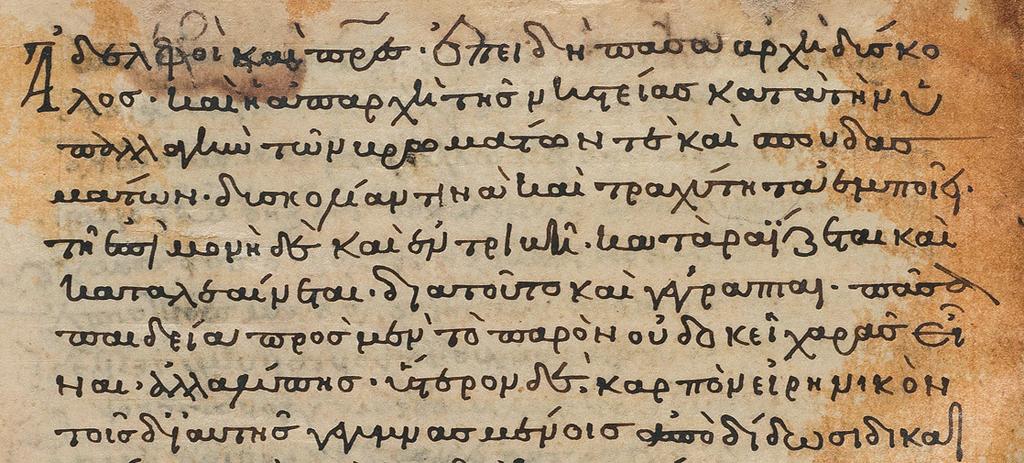 Ἀδελφοὶ καὶ πρσ· ἐπειδὴ πᾶσα ἀρχὴ δύσκο
λος· καὶ ἡ ἀπαρχὴ τῆς νηστείας κατὰ τὴν ὑ
παλλαγὴν τῶν βρωμάτων τὲ καὶ σπουδασ
μάτων· δυσκολίαν τινὰ καὶ τραχύτητα ἐμποιεῖ·
τῆ ἐπιμονῆ δὲ καὶ ἐντριβῆ· καταραΐζεται καὶ
καταλεαίνεται· διατοῦτο καὶ γέγραπται· πᾶσα
παιδεία πρὸς μὲν τὸ παρὸν οὐ δοκεῖ χαρᾶς εἶ
ναι· ἀλλὰ λύπης· ὕστερον δὲ· καρπὸν εἰρηνικὸν
τοῖς δι᾽ αὐτῆς γεγυμνασμένοις ἀποδίδωσι δικαι